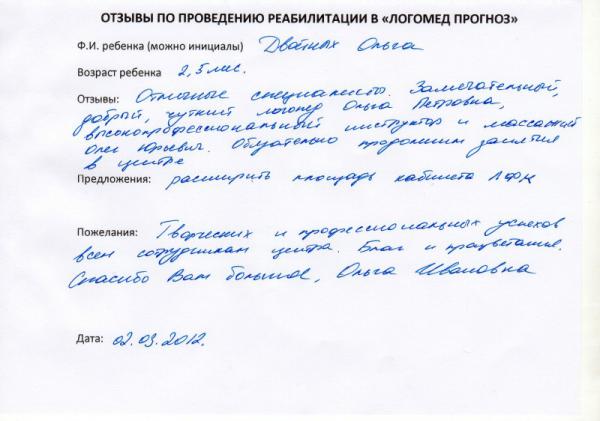 ОТЗЫВЫ ПО ПРОВЕДЕНИЮ РЕАБИЛИТАЦИИ В «ЛОГОМЕД ПРОГНОЗ»
Ф.И. ребенка (можно инициалы) Двойных Ольга
Возраст ребенка 2,5 мес.
Отзывы: Отличные специалисты. Замечательный,
добрый, чуткий логопед Ольга Петровна,
высокопрофессиональный инструктор и массажист
Олег Юрьевич. Обязательно продолжим занятия
в центре
Предложения: расширить площадь кабинета ЛФК
Пожелания: Творческих и профессиональных успехов
всем сотрудникам центра. Благ и процветания.
Спасибо Вам большое, Ольга Ивановна
Дата: 02.03.2012.